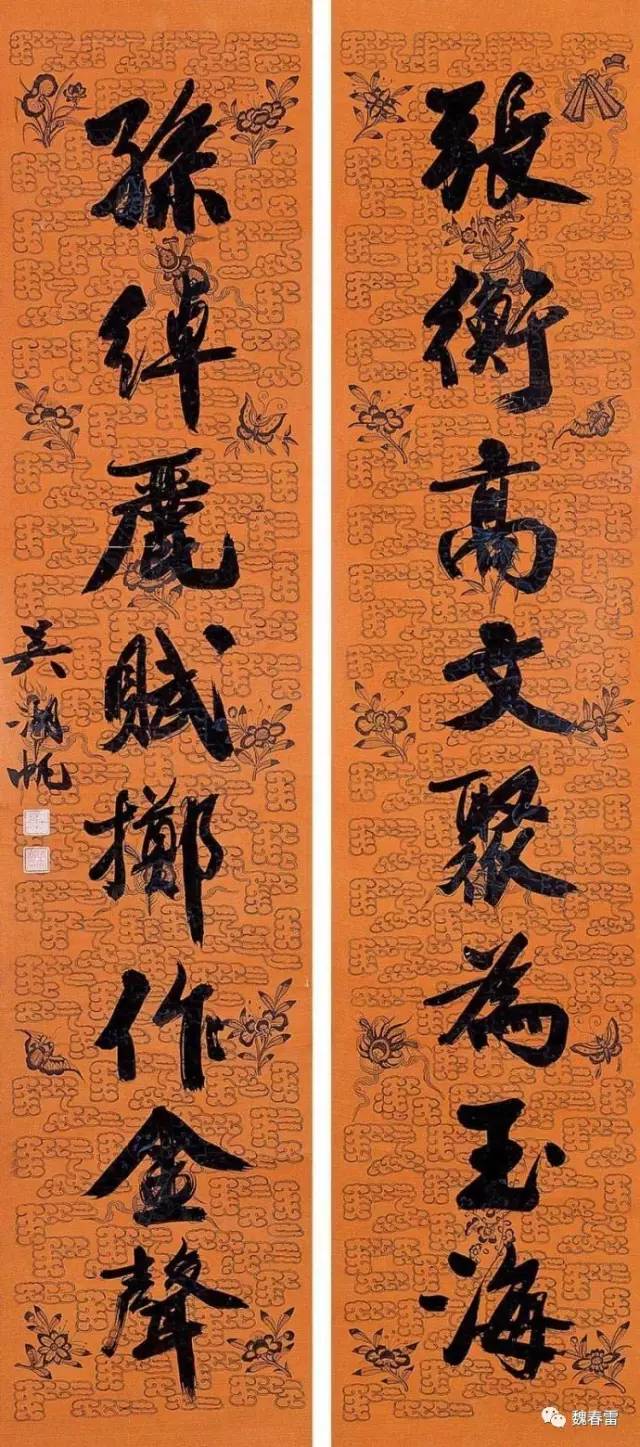 張衡高文聚為玉海
孫綽麗賦擲作金聲
吳湖帆
魏春雷